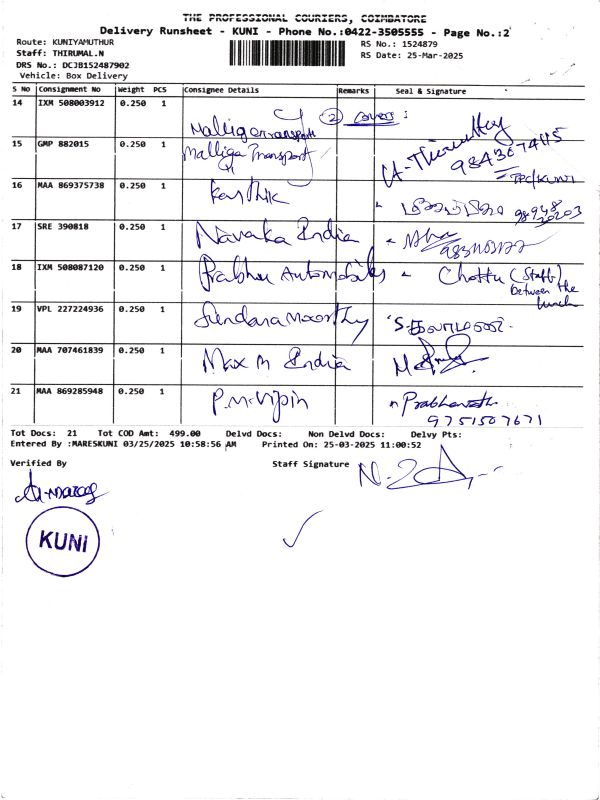 THE PROFESSIONAL COURIERS, COIMBATORE
Delivery Runsheet - KUNI - Phone No.:0422-3505555 - Page No.:2
Route: KUNIYAMUTHUR
RS No.: 1524879
Staff: THIRUMAL.N
RS Date: 25-Mar-2025
DRS No.: DCJB152487902
Vehicle: Box Delivery
S No Consignment No Weight PCS Consignee Details Remarks Seal & Signature
14 IXM 508003912 0.250 1 Malliga Transport (2) covers :
15 GMP 882015 0.250 1 Malliga Transport
9843674415
TPC/KUNI
16 MAA 869375738 0.250 1 Karthik
17 SRE 390818 0.250 1 Navaka India
18 IXM 508087120 0.250 1 Prabhu Automobiles Chottu (Staff)
between the
lunch
19 VPL 227224936 0.250 1 Sundara Moorthy
20 MAA 707461839 0.250 1 Max M India
21 MAA 869285948 0.250 1 P.M.Vipin
9751507671
Tot Docs: 21 Tot COD Amt: 499.00 Delvd Docs: Non Delvd Docs: Delvy Pts:
Entered By :MARESKUNI 03/25/2025 10:58:56 AM Printed On: 25-03-2025 11:00:52
Verified By
Staff Signature
KUNI